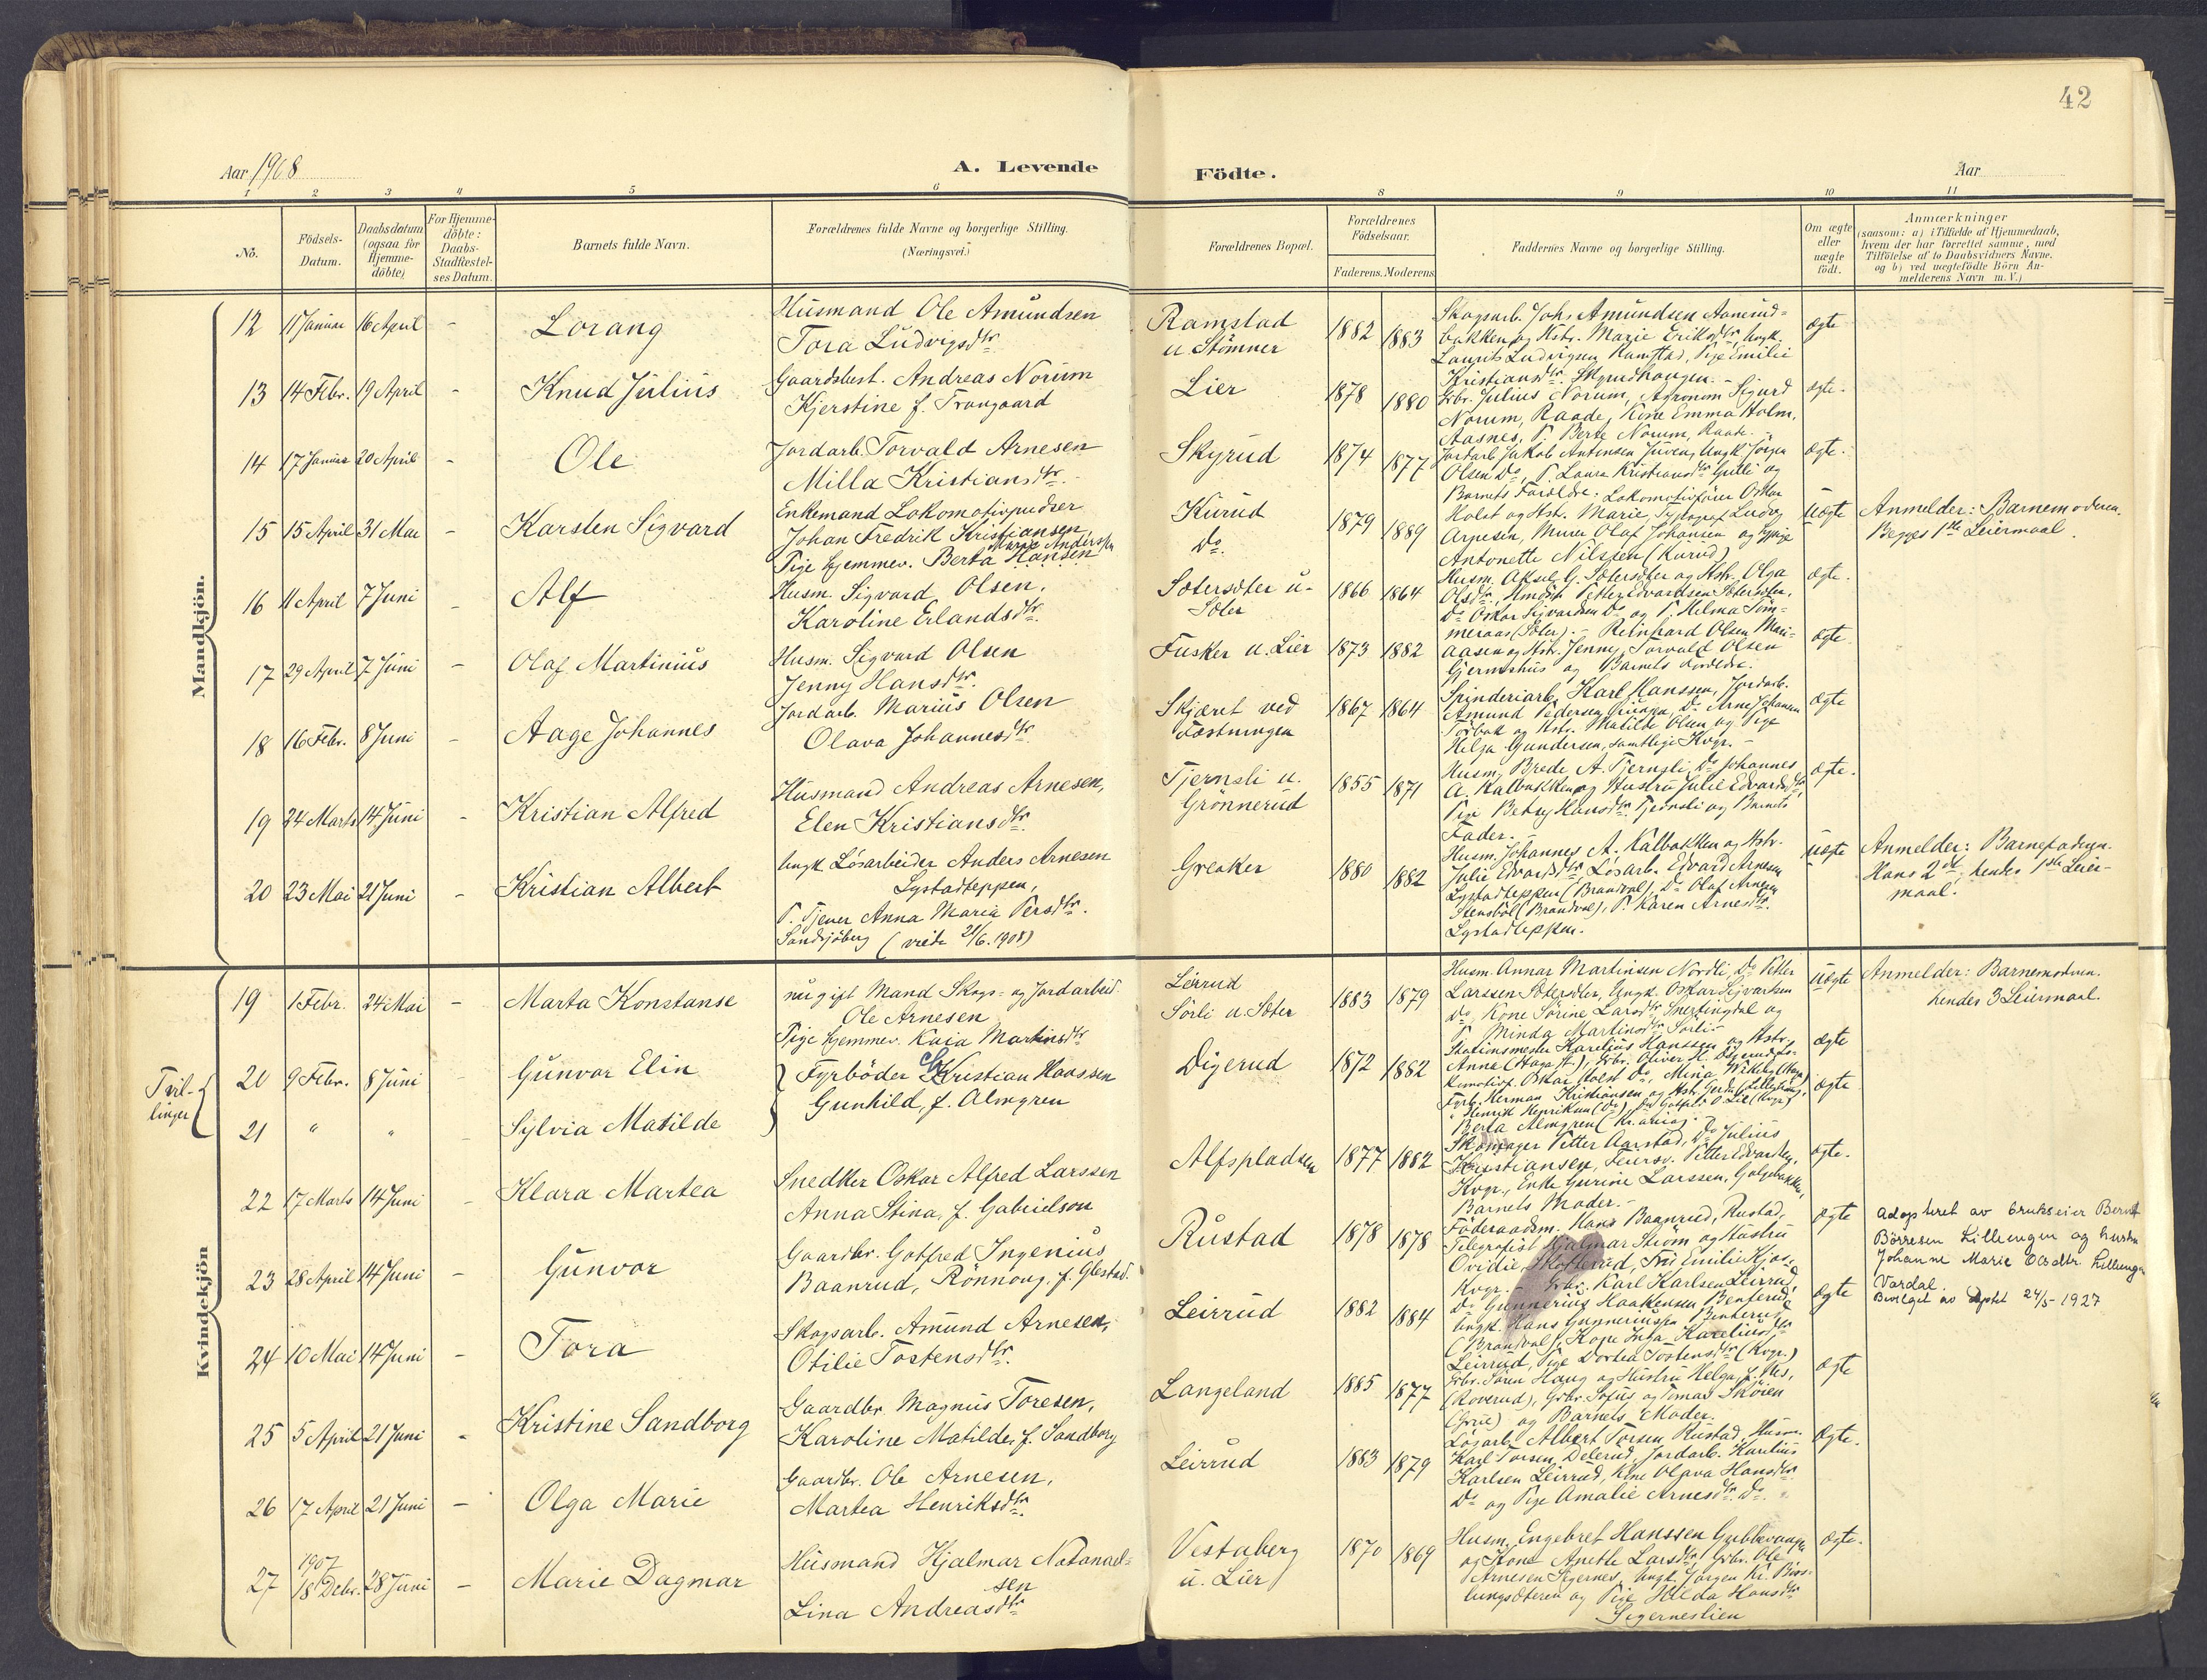 42
Aar 1908
A. Levende
Födte.
Aar
1 2 3 4 5 6 8 9 10 11
No.
Födsels-
Datum.
Daabsdatum
(ogsaa for
Hjemme-
döbte)
For Hjemme-
döbte:
Daabs-
Stadfæstel-
ses Datum.
Barnets fulde Navn.
Forældrenes fulde Navne og borgerlige Stilling.
(Næringsvei.)
Forældrenes Bopæl.
Forældrenes
Födselsaar.
Faderens. Moderens
Faddernes Navne og borgerlige Stilling.
Om ægte
eller
uægte
födt.
Anmærkninger
(saasom: a) i Tilfælde af Hjemmedaab,
hvem der har forrettet samme, med
Tilföielse af to Daabsvidners Navne.
og b) ved uægtefödte Börn An-
melderens Navn m. V.)
Mandkjön.
12 11 Januar 16 April - Lorang
Husmand Ole Amundsen
Tora Ludvigsdtr.
Ramstad
u. Stömner
1882 1883
Skogsarb. Johs Amundsen Aanerud-
bakken og Hstr. Marie Eriksdtr, Ungk.
Laurits Ludvigsen Ramstad, Pige Emilie
Kristiansdtr. Skyrudhaugen. -
ægte
13 14 Febr. 19 April - Knud Julius
Gaardsbest. Andreas Norum
Kjerstine f. Trangaard
Lier
1878 1880
Gbr. Julius Norum, Agronom Sigurd
Norum, Raade, Kone Emma Holm,
Aasnes, P. Berte Norum, Raade. -
ægte.
14 17 Januar 20 April - Ole
Jordarb. Torvald Arnesen
Milla Kristiansdtr.
Skyrud
1874 1877
Jordarb. Jakob Antonsen Juveng, Ungk. Jörgen
Olsen Do, P. Laura Kristiansdtr Grilli og
Barnets Forældre.
ægte.
15 15 April 31 Mai - Karsten Sigvard
Enkemand Lokomotivpudser
Johan Fredrik Kristiansen
Pige hjemmev. Berta Marie Andersen Hansen
Kurud
Do.
1879 1889
Lokomotivförer Oskar
Holst og Hstr. Marie, Typograf Ludvig
Arnesen, Murer Olaf Johansen og Pige
Antonette Nilssen (Kurud)
Uægte
Anmelder: Barnemoderen.
Begges 1ste Leiermaal.
16 11 April 7 Juni - Alf
Husm. Sigvard Olsen.
Karoline Erlandsdtr.
Sætersæter u.
Sæter
1866 1864
Husm. Aksel G. Sætersæter og Hstr. Olga
Olsdtr, Petter Edvardsen Sætersæter,
Do Oskar Sigvardsen Do og P. Helma Töm-
meraas (Sæter). -
ægte.
17 29 April 7 Juni - Olaf Martinius
Husm. Sigvard Olsen
Jenny Hansdtr.
Fusker u. Lier
1873 1882
Reinhard Olsen Mari-
aasen og Hstr. Jenny, Torvald Olsen
Gjermshus og Barnets Forældre.
ægte
18 16 Febr. 8 Juni - Aage Johannes
Jordarb. Marius Olsen
Olava Johannesdtr.
Skjæret ved
Fæstningen
1867 1864
Spinderiarb. Karl Hanssen, Jordarb.
Amund Pedersen, Do Arne Johansen
og Hstr. Matilde Olsen og Pige
Helga Gundersen, samtlige Kvgr. -
ægte
19 24 Marts 14 Juni - Kristian Alfred
Husmand Andreas Arnesen,
Elen Kristiansdtr.
Tjernsli u.
Grönnerud
1855 1871
Husm. Brede A. Tjernsli, Do Johannes
A. Kalbakken og Hustru Julie Edvardsdtr,
Pige Betsy Hansdtr. Tjernsli og Barnets
Fader. -
ægte.
20 23 Mai 21 Juni - Kristian Albert
Ungk. Lösarbeider Anders Arnesen
Lystadteppen,
P. Tjener Anna Maria Persdtr.
Sandsjöberg (viede 21/6. 1908)
Greaker
1880 1882
Husm. Johannes A. Kalbakken og Hstr.
Julie Edvardsdtr, Lösarb. Edvard Arnesen
Lystadteppen (Brandval), Do Olaf Arnesen
Stensböl (Brandval), P. Karen Arnesdtr.
Lystadteppen.
Uægte
Anmelder: Barnefaderen.
Hans 2det, hendes 1ste Leier-
maal.
Kvindekjön
19 1 Febr. 24 Mai - Marta Konstanse
nu gift Mand Skogs- og Jordarbeid.
Ole Arnesen
Pige hjemmev. Kaia Martinsdtr
Leirud
Sörli u. Sæter
1883 1879
Husm. Annar Martinsen Nordli, Do Petter
Larssen Sætersæter, Ungk. Oskar Sigvardsen
Do, Kone Sörine Larsdtr. Snertingdal og
P. Minda Martinsdtr. Sörli. -
Uægte
Anmelder: Barnemoderen.
hendes 3 Leiermaal.
Tvil-
linger
20 9 Febr. 8 Juni Gunvor Elin
21 " " - Sylvia Matilde
Fyrböder Kristian Haassen
Gunhild, f. Almgren
Digerud
1872 1882
Stationsmester Karelius Hanssen og Hstr.
Anna (Haga St.), Gbr. Oliver H. Digerud, Lo-
komotivf. Oskar Holst Do, Mina
Fyrb. Herman Kristiansen og Hstr. Gerda (Lilleström),
" Henrik Henriksen (Do), O. Lie (Kvgr)
Berta Almgren
ægte
ægte
22 17 Marts 14 Juni - Klara Martea
Snedker Oskar Alfred Larssen
Anna Stina, f. Gabrielson
Alfspladsen
1877 1882
Skomager Petter Aarstad, Do Julius
Kristiansen, Petter Edvardsen,
Kvgr., Enke Gurine Larssen, Galgebakken,
Barnets Moder. -
ægte.
23 28 April 14 Juni - Gunvor
Gaardbr. Gotfred Ingenius
Baanrud, Rönnaug, f. Glestad.
Rustad
1878 1878
Föderaadsm. Hans Baanrud, Rustad,
Telegrafist Hjalmar Ström og Hustru
Ovidie, Skotterud, Frü Emilie
Kvgr. -
ægte
Adopteret av brukseier Bernt
Börresen Lillengen og hustru
Johanne Marie Olsdtr. Lillengen
Vardal.
Bevilget av Dptet 24/5-1927
24 10 Mai 14 Juni - Tora
Skogsarb. Amund Arnesen,
Otilie Tostensdtr.
Leirrud
1882 1884
Gbr. Karl Karlsen Leirrud,
Do Gunnerius Haakensen Benterud,
Ungk. Hans Gunneriussen Benterud
(Brandval), Kone Inga Kareliusdtr
Leirrud, Pige Dortea Tostensdtr (Kvgr.)
ægte
25 5 April 21 Juni - Kristine Sandborg
Gaardbr. Magnus Toresen,
Karoline Matilde, f. Sandborg
Langeland
1885 1877
Gbr. Sören Haug og Hustru Helga, f. Næs,
(Roverud), Gbr. Sofus og Tomas Skøien
(Grue) og Barnets Moder.
ægte
26 17 April 21 Juni - Olga Marie
Gaardbr. Ole Arnesen,
Martea Henriksdtr.
Leirrud
1883 1879
Lösarb. Albert Torsen Rustad, Husm.
Karl Torsen, Delerud, Jordarb. Karelius
Karlsen Leirrud, Kone Olava Hansdtr.
Do og Pige Amalie Arnesdtr. Do.
ægte.
27 1907 18 Debr. 28 Juni - Marie Dagmar
Husmand Hjalmar Natanael-
sen
Lina Andreasdtr
Vestaberg
u. Lier
1870 1869
Husm. Engebret Hanssen Gubbevangen
og Kone Anethe Larsdtr, Gbr. Ole
Arnesen Sigernes, Ungk. Jörgen Kr. Birs-
lungsæteren og Pige Hilda Hansdtr
Sigerneslien
ægte.